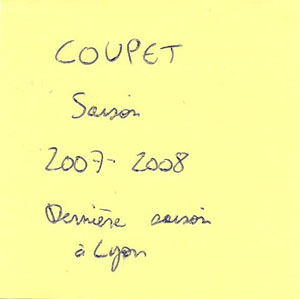 COUPET
Saison
2007-2008
Dernière saison
à Lyon